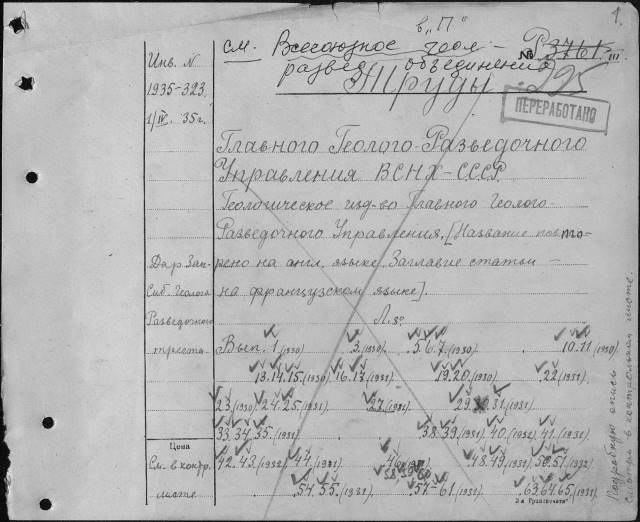 1.
в „П"
см. Всесоюзное геол.-
развед. объединение
№ Р 3761 III.
Труды
295
ПЕРЕРАБОТАНО
Инв. N
1935-323.
1/IV. 35г.
Главного Геолого-Разведочного
Управления ВСНХ-СССР
Геологическое изд-во Главного Геолого-
Разведочного Управления. [Название повто-
рено на англ. языке. Заглавие статьи -
на французском языке].
Л. 8°
Дар Зап-
Сиб. Геолого
Разведочного
треста.
Вып. 1 (1930) .3. (1930). .5.6.7. (1930). 10.11 (1930)
13.14.15. (1930) 16.17. (1931) 19.20. (1930) .22 (1931)
23. (1930) 24.25. (1931). 27. (1931) 31. (1931).
33.34.35. (1931) 38.39. (1931) 40. (1932) 41. (1931)
42.43. (1932) 44. (1931) 48.49. (1931) 50.51. (1932)
.54.55. (1931) .57-61. (1931) .63.64.65. (1931)
Цена
См. в контр.
листе
3-я Гравпечать
Подробную опись
смотри в контрольном листе.